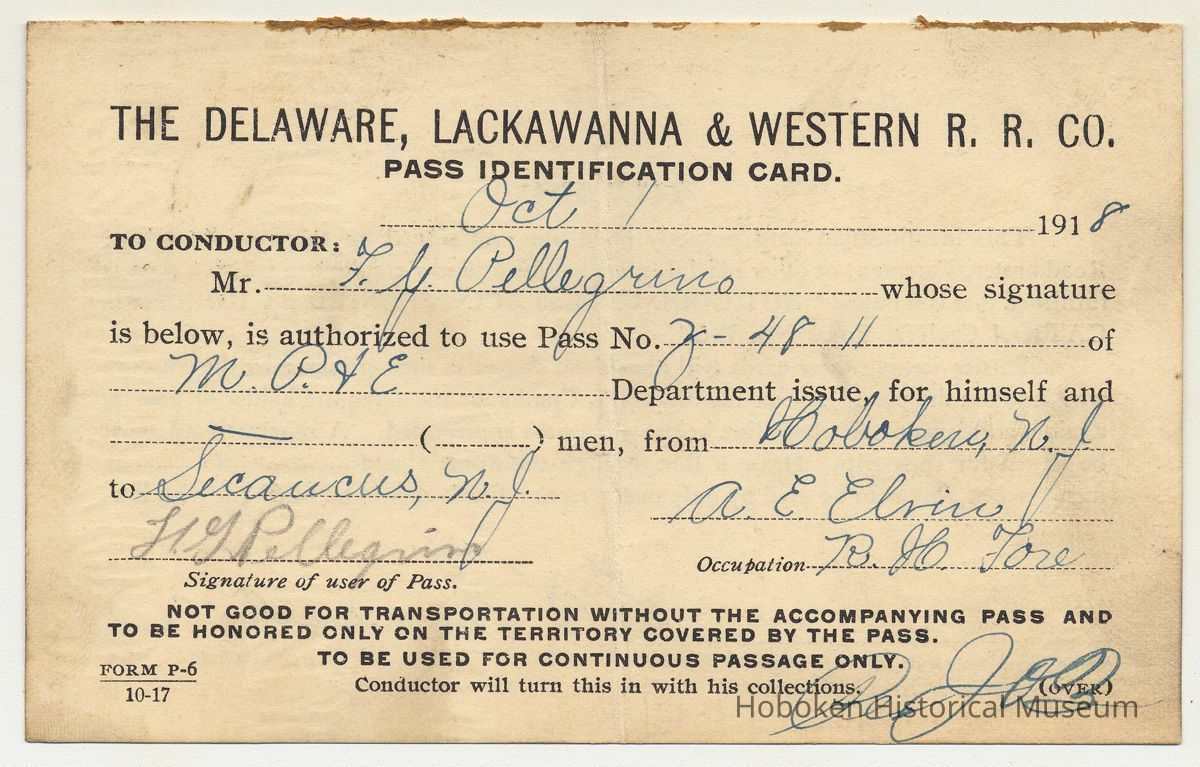 THE DELAWARE, LACKAWANNA & WESTERN R. R. CO.
PASS IDENTIFICATION CARD.
Oct 1 1918
TO CONDUCTOR:
Mr. F. Y. Pellegrino whose signature
is below, is authorized to use Pass No. Z-48 11 of
M. P. & E Department issue, for himself and
— ( ) men, from Hoboken, N. J
to Secaucus, N. J.
A. E. Elvin
Pellegrino
Occupation R. H. Fore
Signature of user of Pass.
NOT GOOD FOR TRANSPORTATION WITHOUT THE ACCOMPANYING PASS AND
TO BE HONORED ONLY ON THE TERRITORY COVERED BY THE PASS.
TO BE USED FOR CONTINUOUS PASSAGE ONLY.
FORM P-6
10-17
Conductor will turn this in with his collections. (OVER)
Hoboken Historical Museum